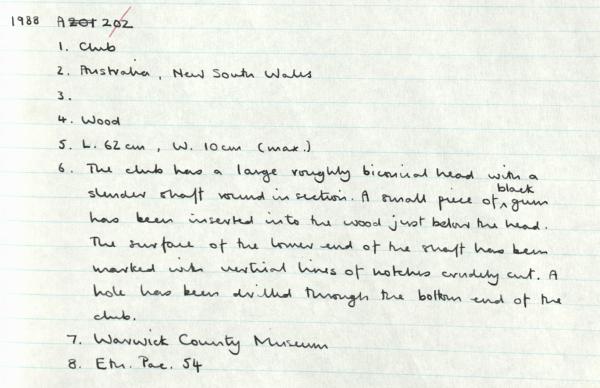 1988 A201 202
1. Club
2. Australia, New South Wales
3.
4. Wood
5. L. 62cm, W. 10cm (max.)
6. The club has a large roughly biconical head with a
slender shaft round in section. A small piece of black gum
has been inserted into the wood just below the head.
The surface of the lower end of the shaft has been
marked with vertical lines of notches crudely cut. A
hole has been drilled through the bottom end of the
club.
7. Warwick County Museum
8. Eth. Pac. 54